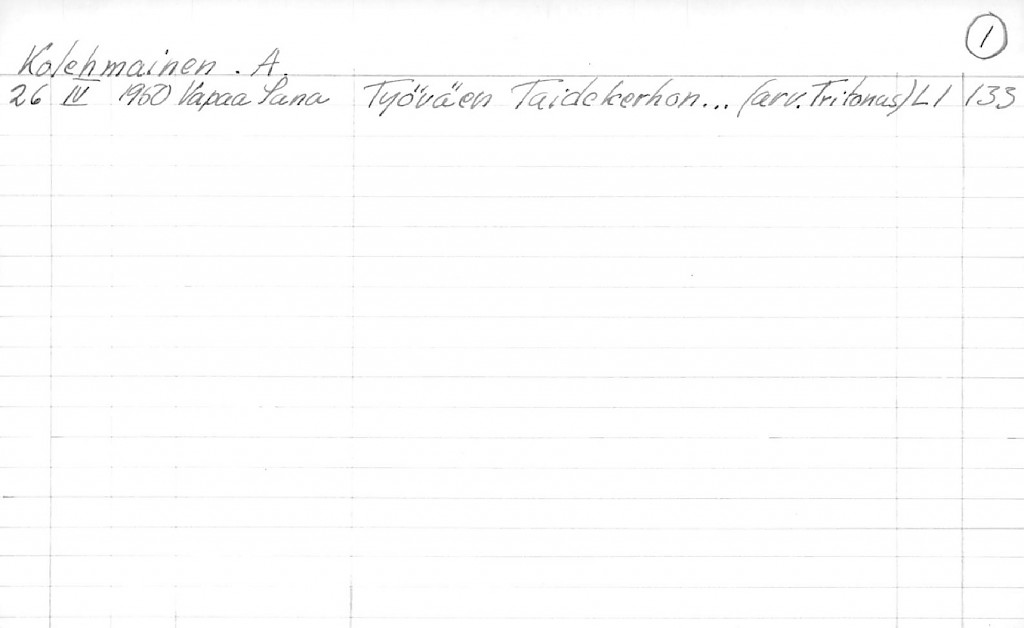 1
Kolehmainen . A.
26 IV 1960 Vapaa Sana Työväen Taidekerhon... (arv. Tritonus) L1 133